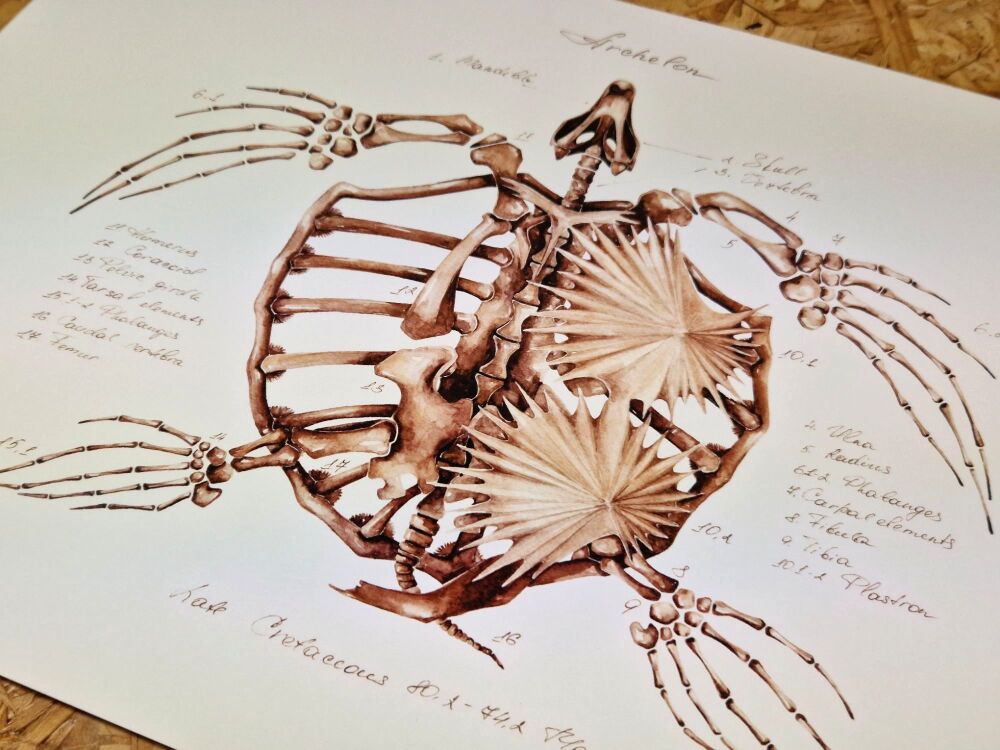 Archelon
2. Mandible
1 Skull
3. Vertebra
6.1
11
4
5
7
6.
11 Humerus
12 Coracoid
13 Pelvic girdle
14 Tarsal elements
15.1-2 Phalanges
16 Caudal vertebra
17 Femur
12
10.1
13
15.1
14
17
4. Ulna
5 Radius
6.1-2 Phalanges
7. Carpal elements
8 Fibula
9 Tibia
10.1-2 Plastron
10.2
8
9
16
Late Cretaceous 80.2-74.2